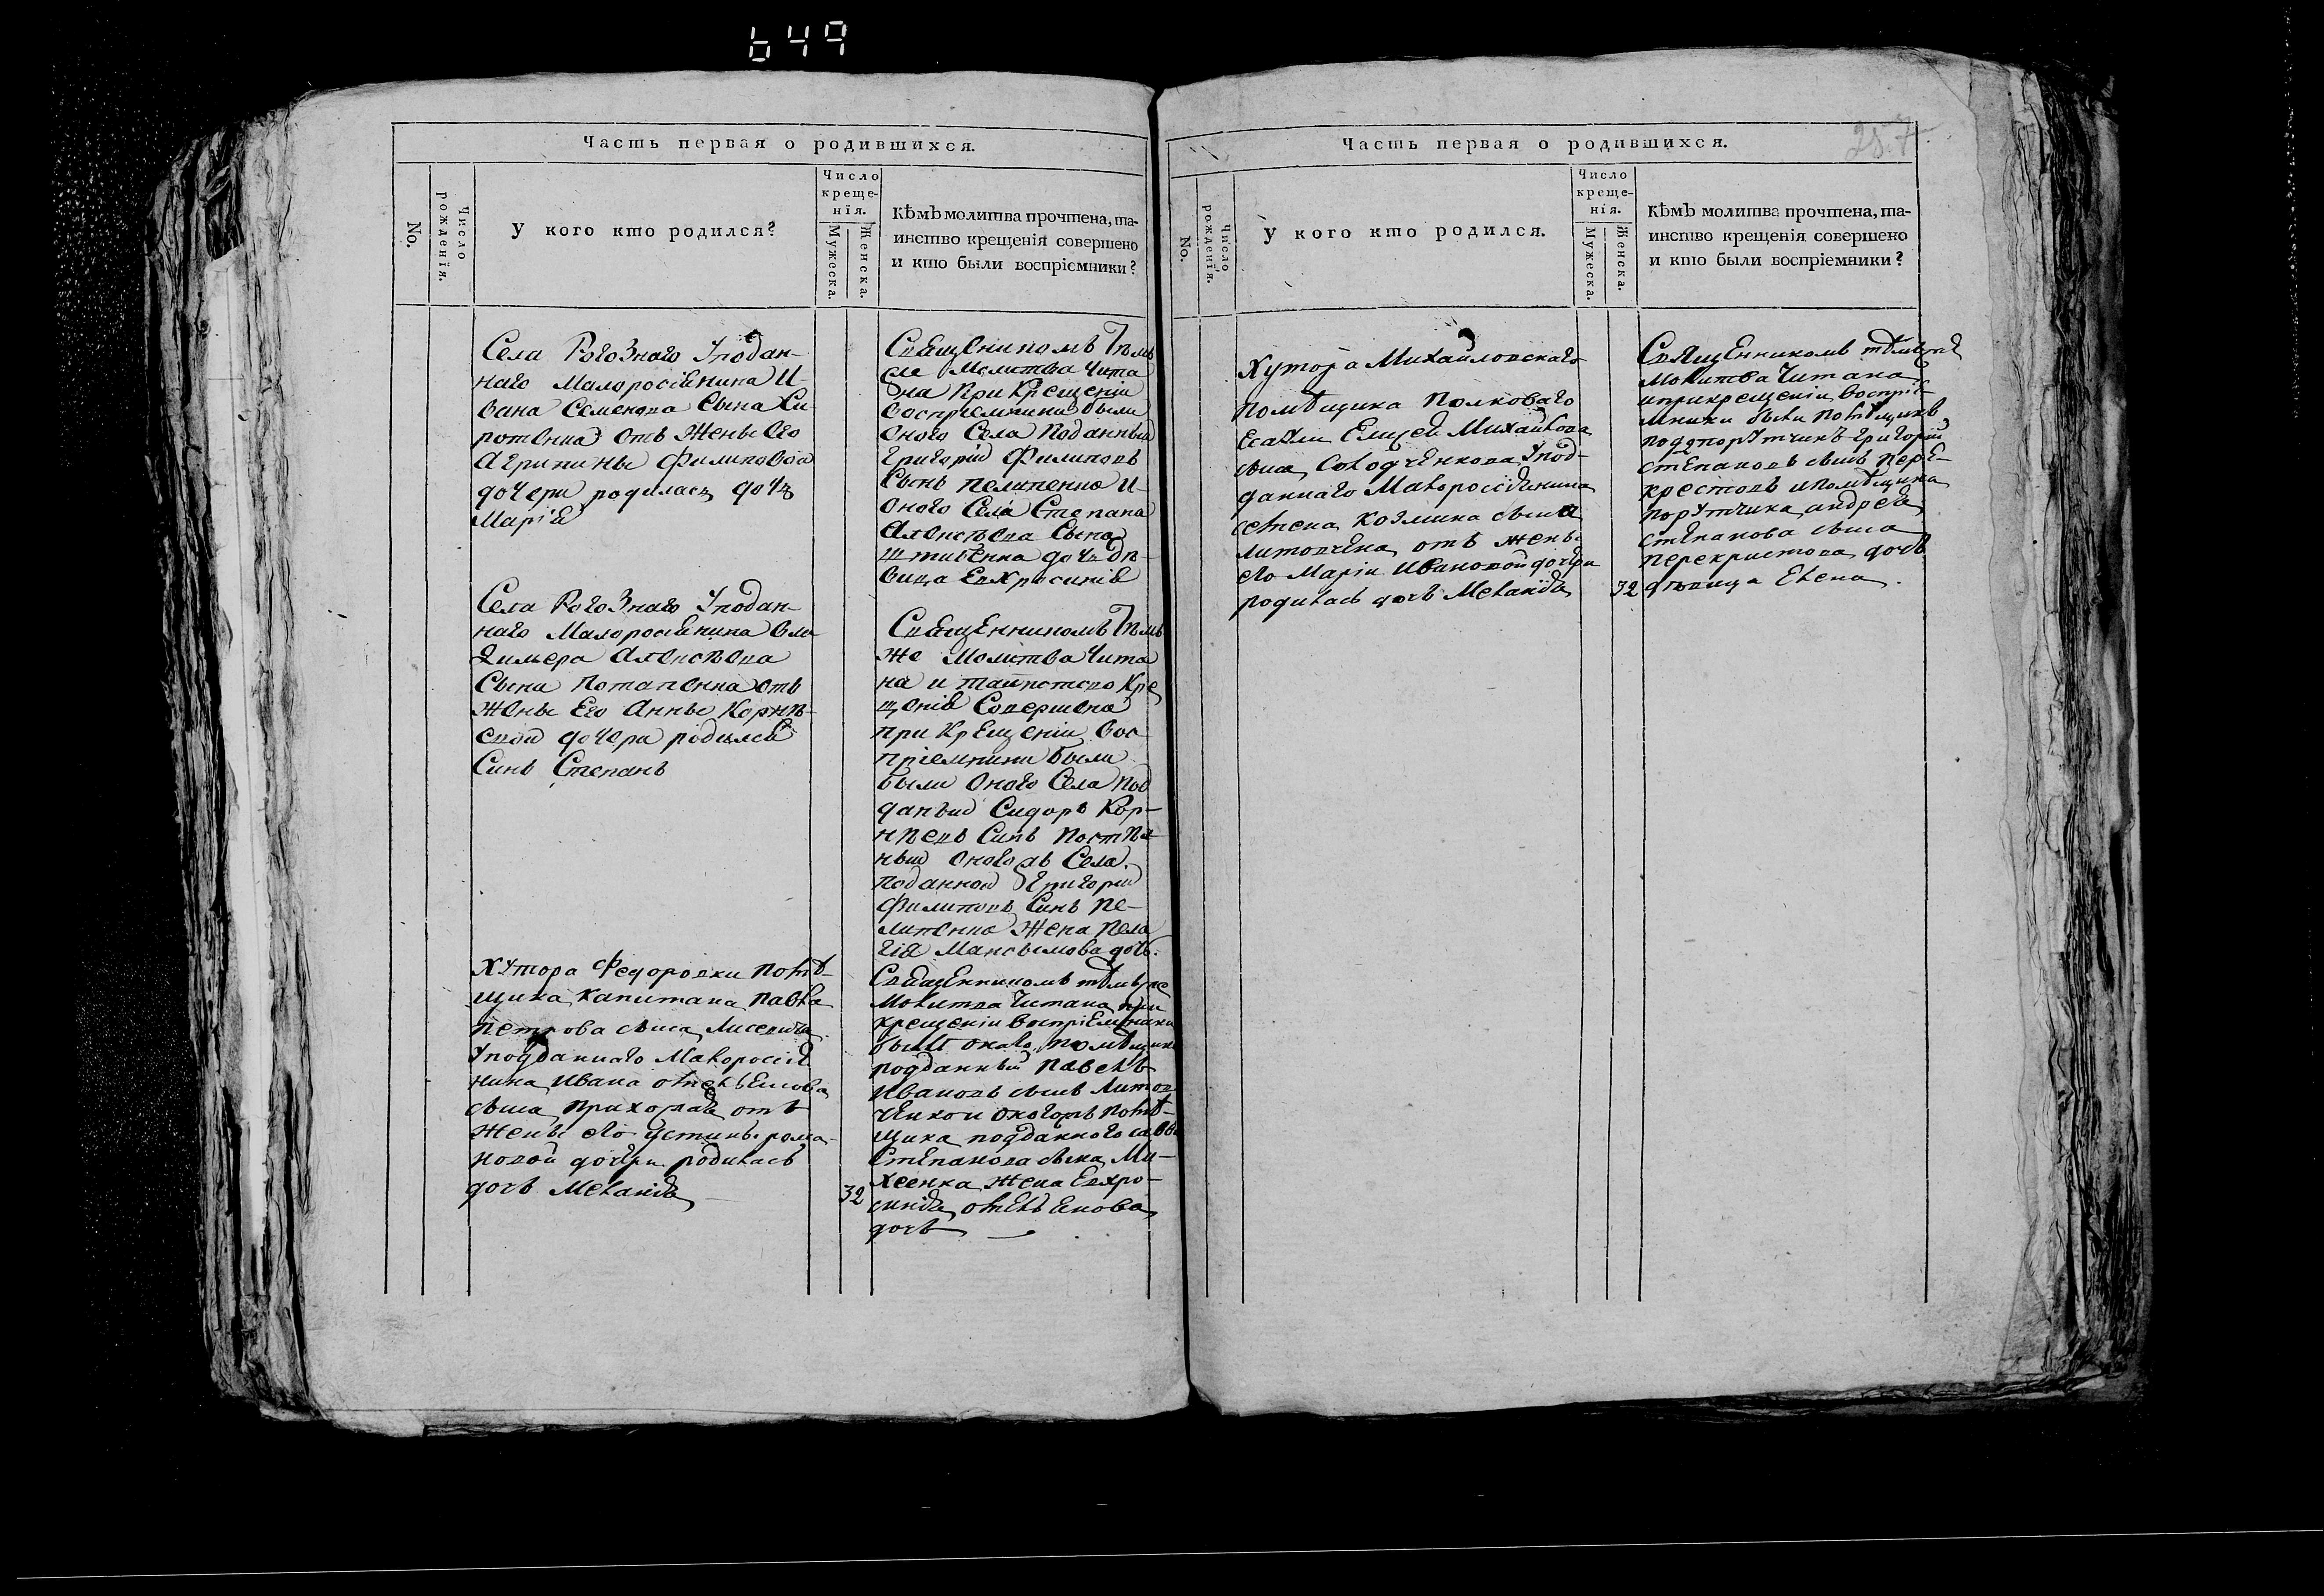 649
Часть первая о родившихся.
No.
Число рожденїя.
У кого кто родился?
Число
креще-
нїя.
Мужеска.
Женска.
Кѣмъ молитва прочтена, та-
инство крещенїя совершено
и кто были воспрїемники?
Села Рогознаго У подан-
наго Малоросіянина И-
вана Семенова Сына Си
ротенка отъ Жены его
Агрипины Филиповой
дочери родилась дочь
Марія
Священикомъ Тѣмъ
же Молитва Чита
на При Крещеніи
воспріемники были
оного Села Поданный
Григорій Филиповъ
Сынъ Пелипенко И
оного Села Степана
Алексѣева Сына
дочь дѣ-
вица Евхросинія
Села Рогознаго У подан-
наго Малоросіянина Вла
димера Алексѣева
Сына Потапенка отъ
Жены Его Анны Корнѣ-
евой дочери родился
Синъ Степанъ
Священникомъ Тѣмъ
же Молитва Чита
на и таинство Кре
щенія Совершено
при Крещеніи вос
пріемники были
были оного Села Под
даный Сидоръ Кор-
нѣевъ Синъ
оного жъ Села
Поданной Григорій
Филиповъ Синъ Пе-
липенко Жена Пела
гія Максымова дочь.
Хутора Федоровки Помѣ-
щика Капитана Павла
Петрова сына Лисевича
У подданнаго Малоросія
нина Ивана Алексѣева
сына Приходка отъ
жены его Устины Рома-
новой дочери родилась
дочь Меланія
32
Священникомъ тѣмъ же
Молитва Читана при
крещеніи воспріемники
были оного помѣщика
подданный Павелъ
Ивановъ сынъ Литов
ченко и оногожъ помѣ-
щика подданного Саввы
Степанова сына Ми-
хеенка жена Евхро-
синія Алексѣева
дочь
Часть первая о родившихся.
257
No.
Число рожденїя.
У кого кто родился.
Число
креще-
нїя.
Мужеска.
Женска.
Кѣмъ молитва прочтена, та-
инство крещенїя совершено
и кто были воспрїемники?
Хутора Михайловскаго
помѣщика Полковаго
Есаула Елисея Михайлова
сына Солодченкова У под-
даннаго Малоросіянина
Семена Козмина сына
Литовчена отъ жены
его Маріи Ивановой дочери
родилась дочь Меланія
32
Священникомъ тѣмъ же
Молитва Читана
и прикрещеніи воспріе-
мники были помѣщикъ
подпорутчикъ Григорій
Степановъ сынъ Пере-
крестовъ и помѣщика
порутчика Андрея
Степанова сына
Перекристова дочь
дѣвица Елена.